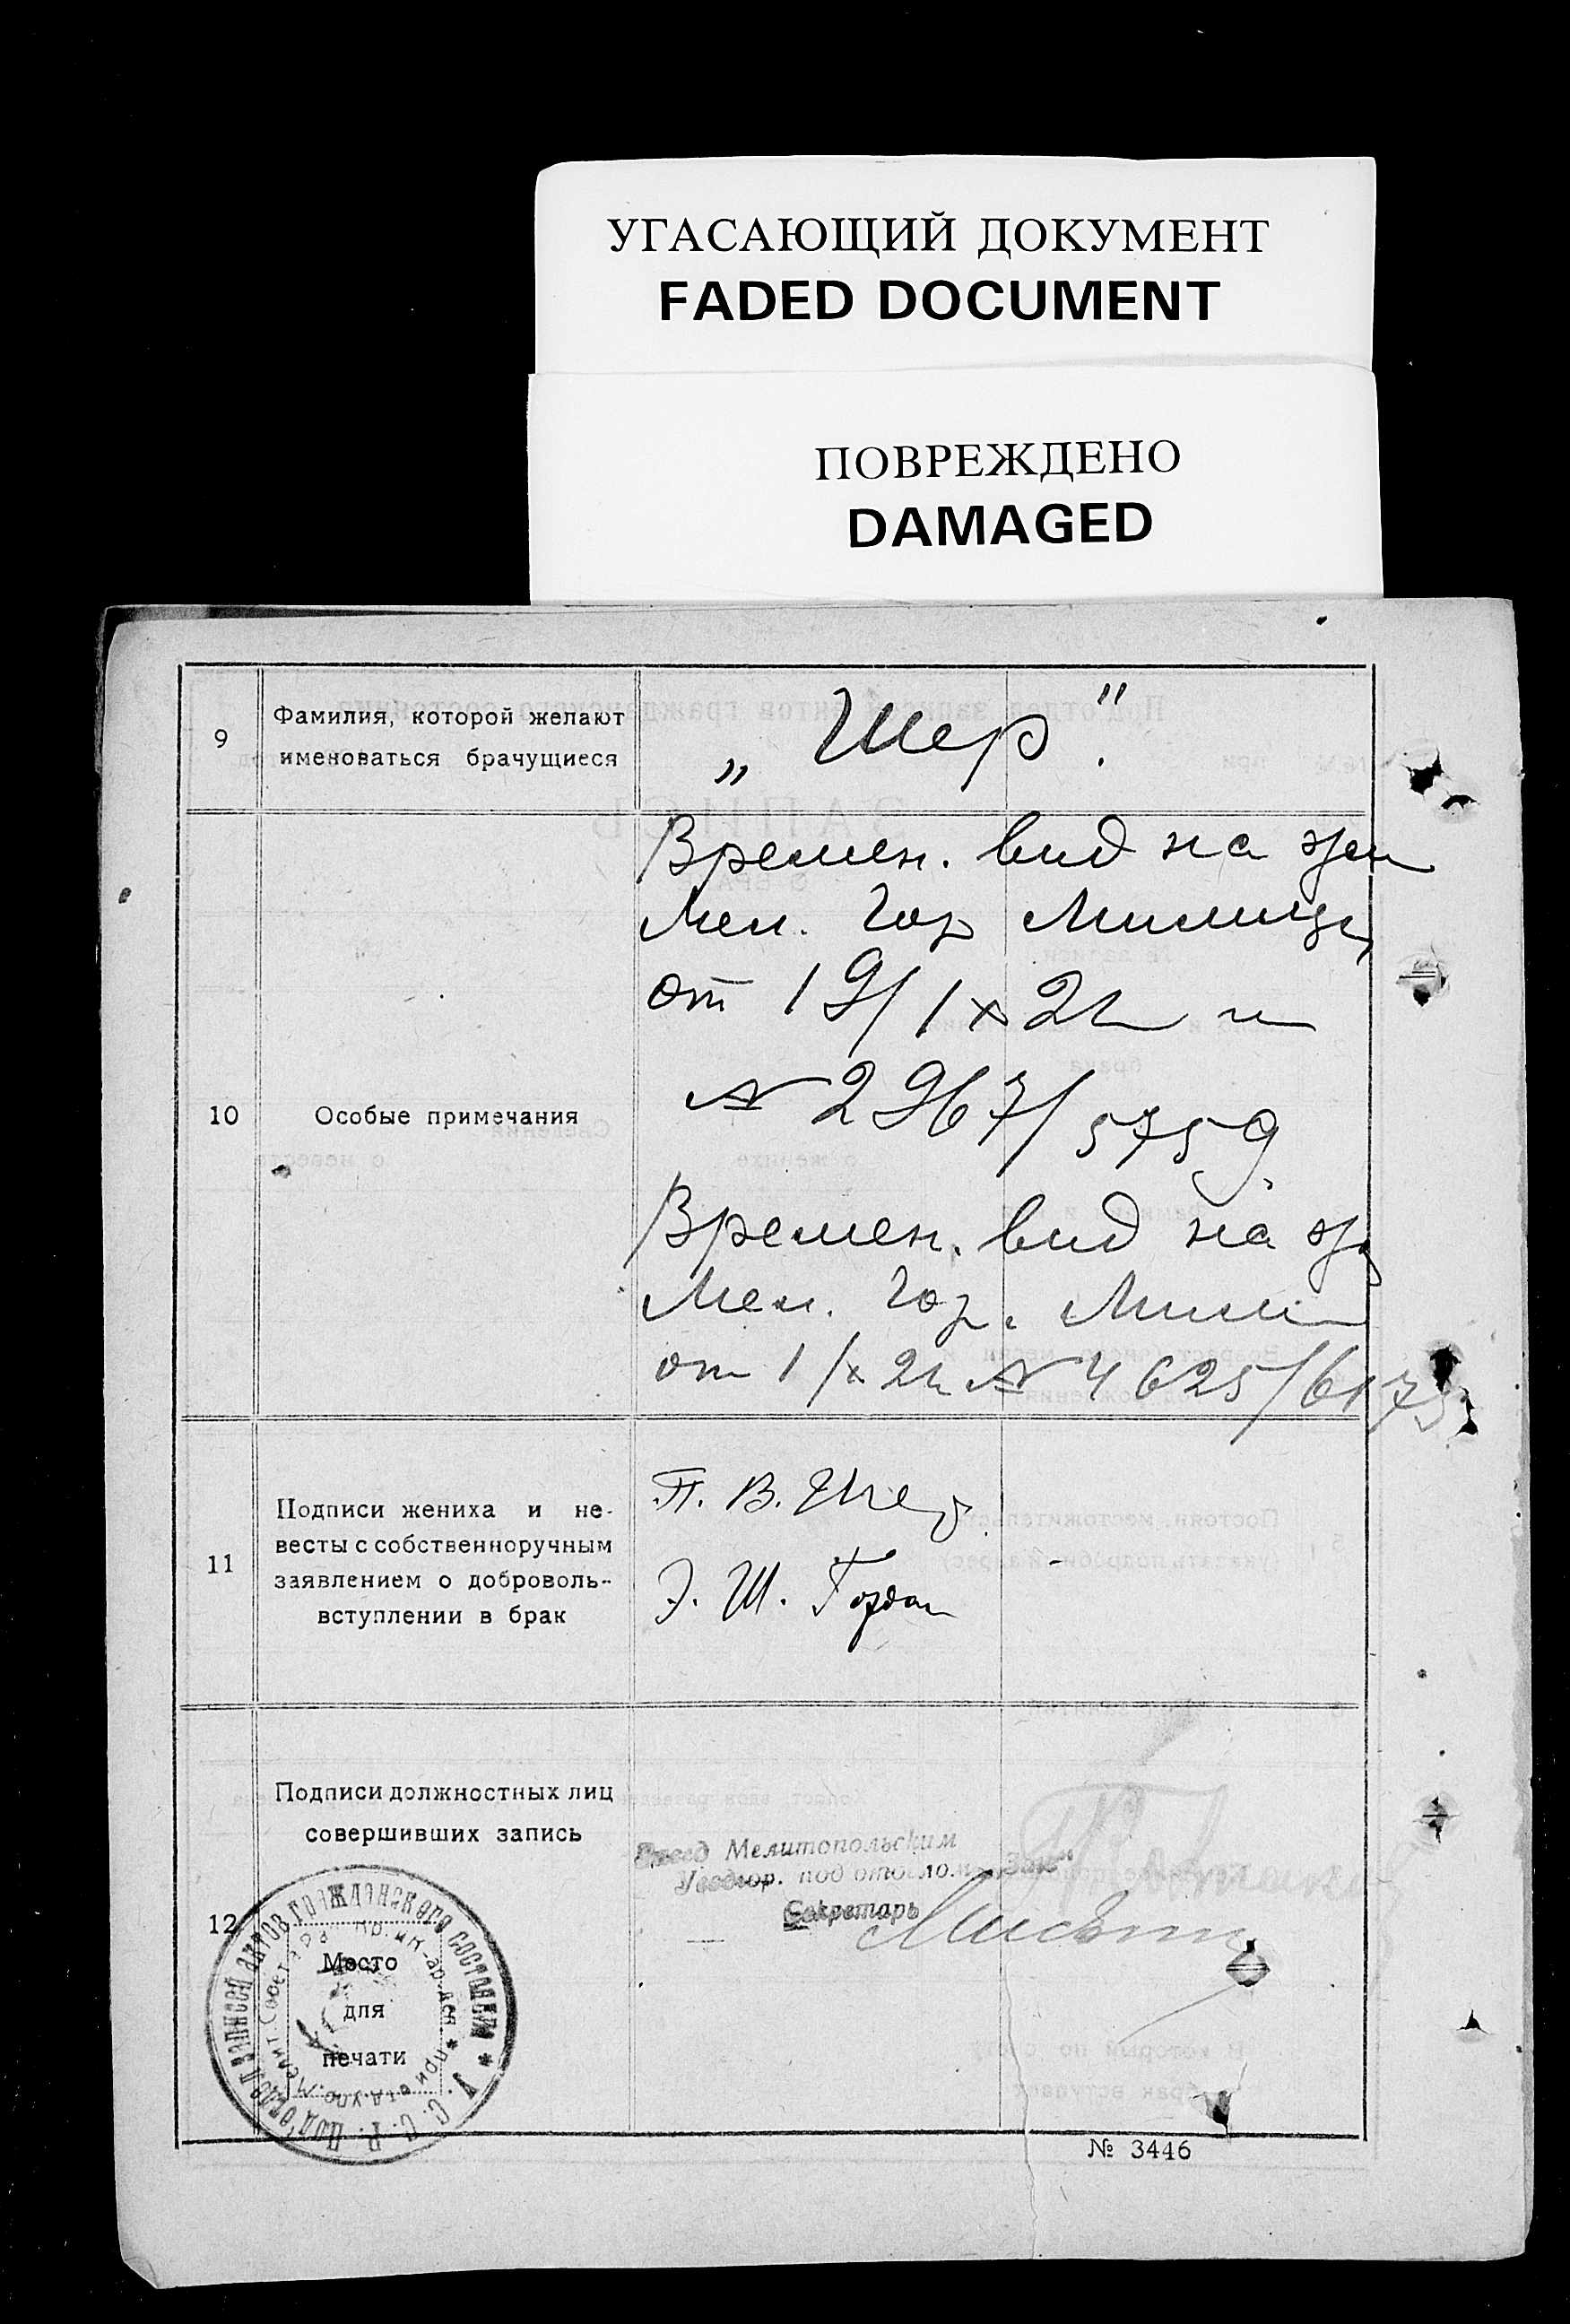 УГАСАЮЩИЙ ДОКУМЕНТ
FADED DOCUMENT
ПОВРЕЖДЕНО
DAMAGED
9
Фамилия, которой желают
именоваться брачущиеся
„Шер".
10
Особые примечания
Времен. вид на
Мел. Гор Милиц
от 19/IX 21 г
№ 2967/5759.
Времен. вид на
Мел. Гор. Мили
от 1/X 21 № 4625/6175
11
Подписи жениха и не-
весты с собственноручным
заявлением о доброволь-
вступлении в брак
П. В. Шер
Э. Ш. Гордон
12
Подписи должностных лиц
совершивших запись
Мелитопольским
под
Секретарь
Место
для
печати
У. С. С. Р. Подотдел записей актов гражданского состояния
№ 3446